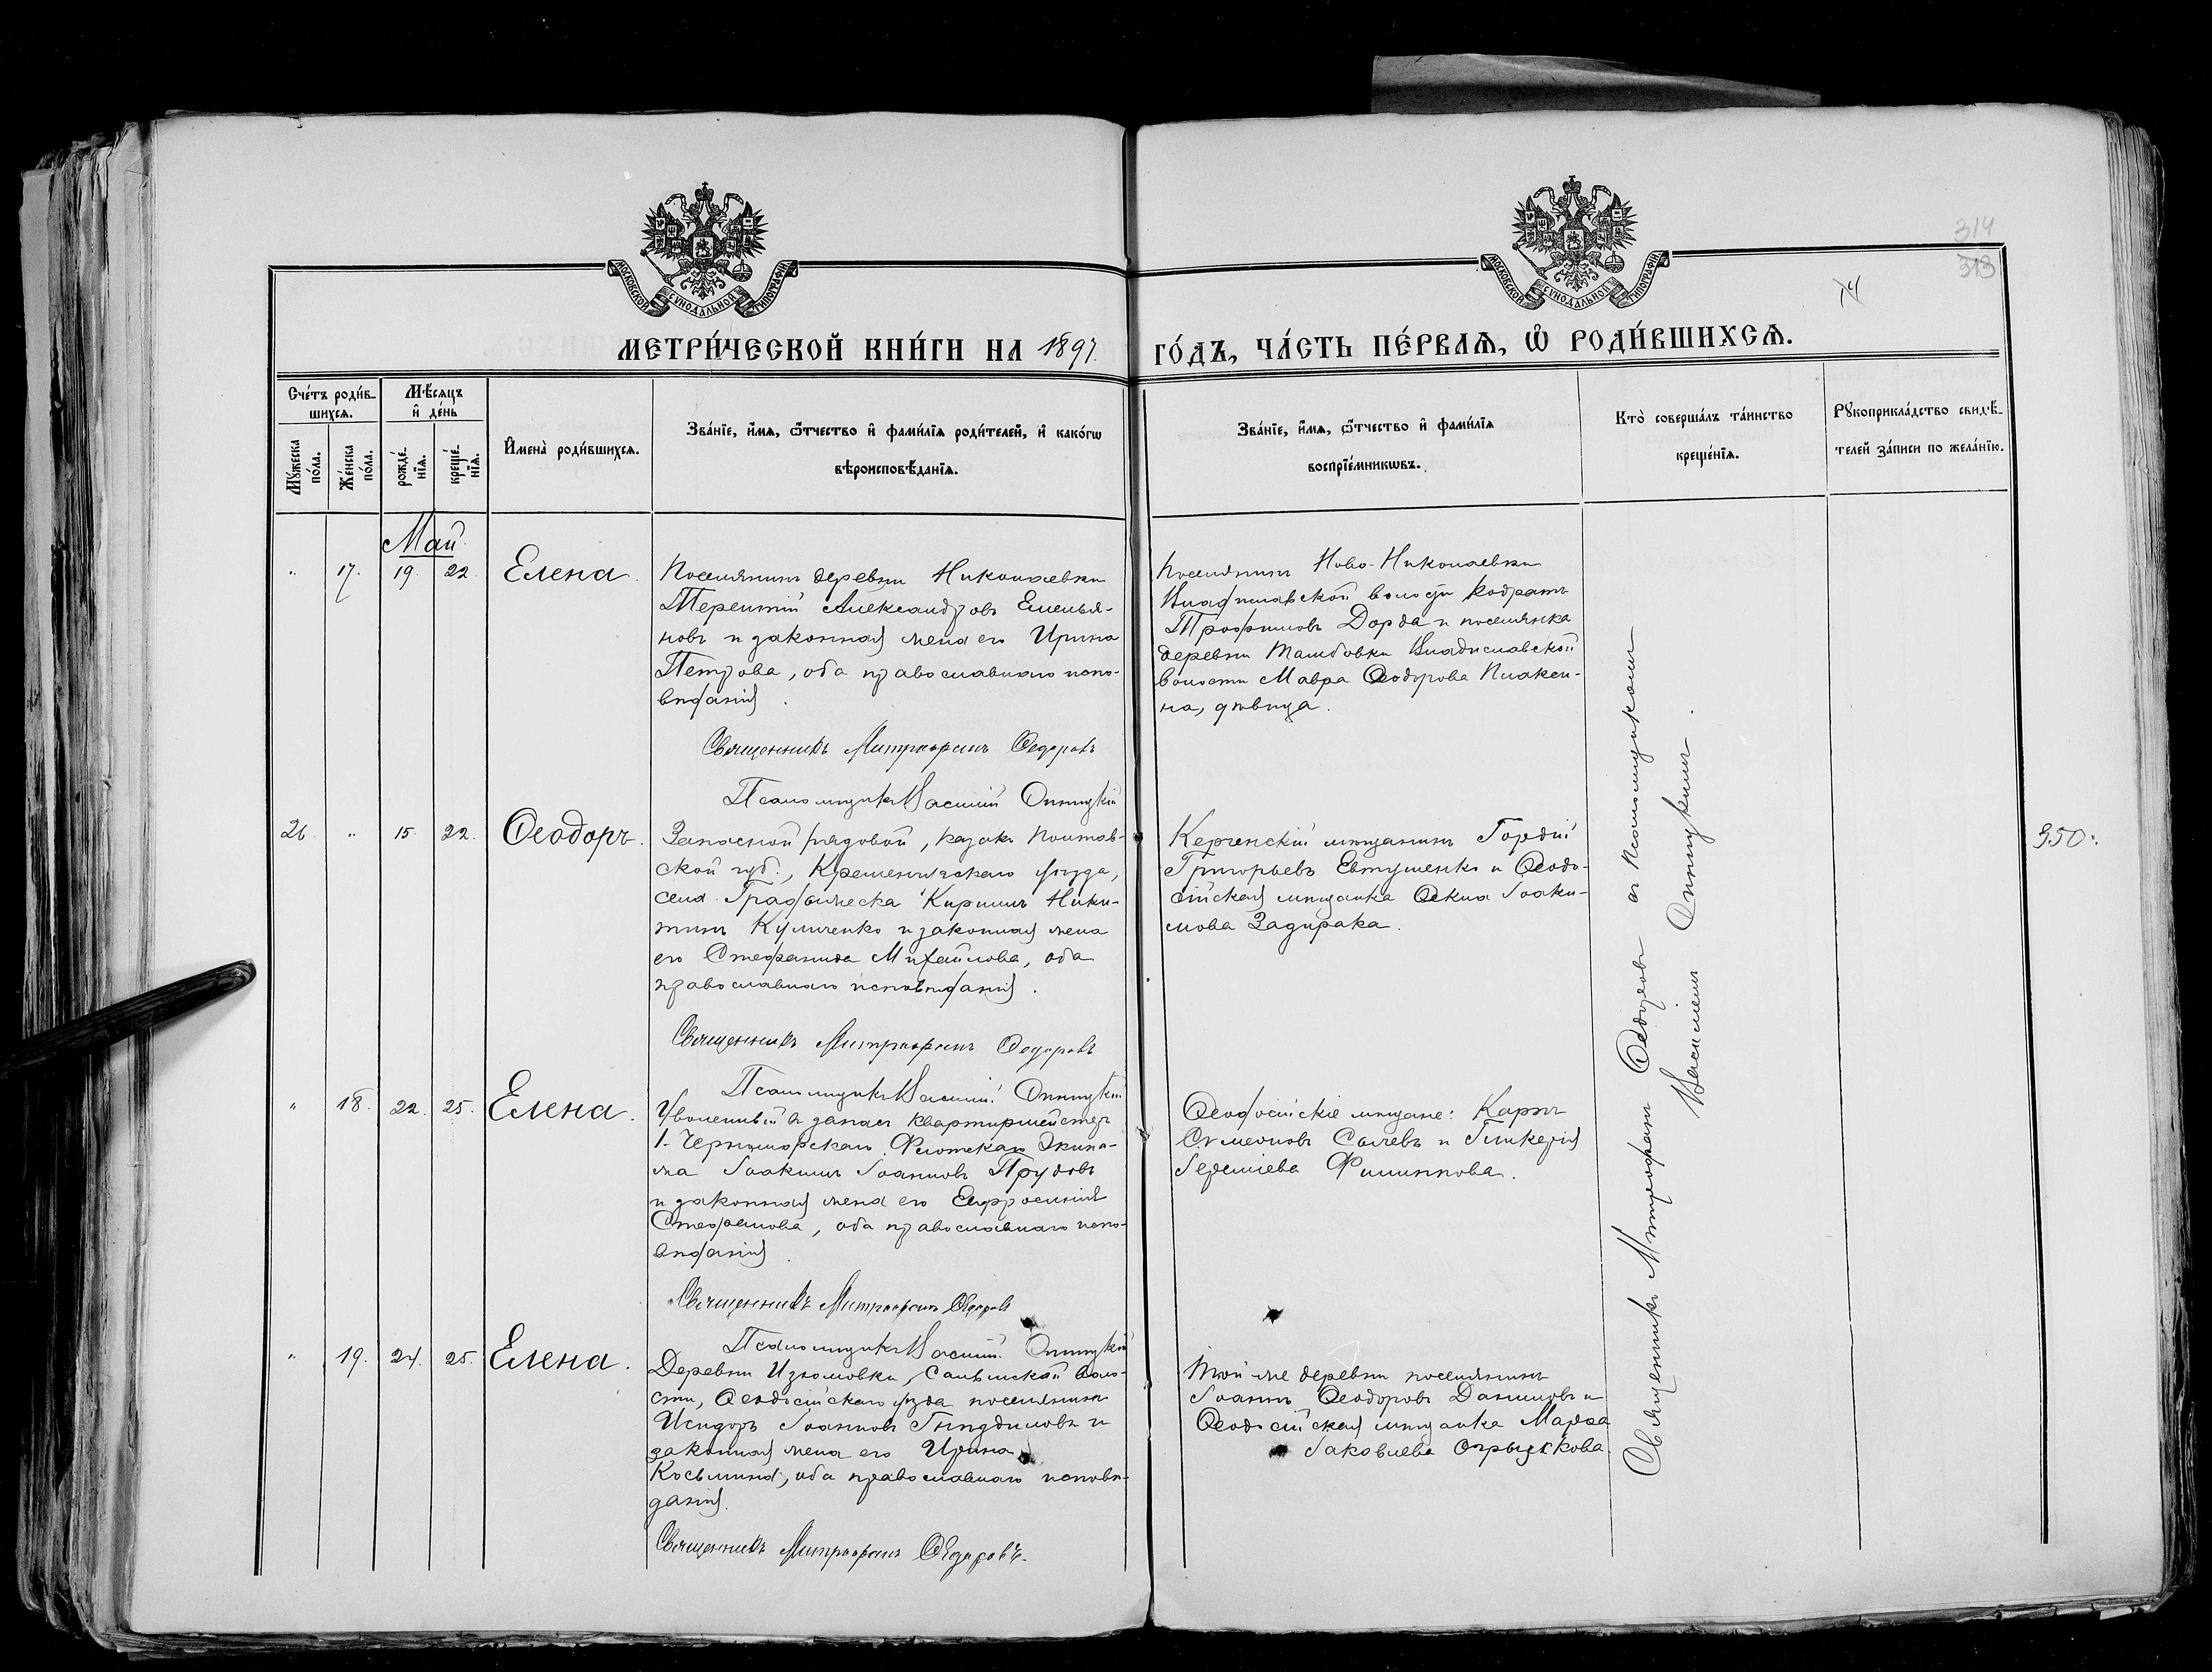 314
313
74
МОСКОВСКОЙ СѴНОДАЛЬНОЙ ТИПОГРАФІИ
МОСКОВСКОЙ СѴНОДАЛЬНОЙ ТИПОГРАФІИ
МЕТРИ́ЧЕСКОЙ КНИ́ГИ НА 1897. ГО́ДЪ, ЧА́СТЬ ПЕ́РВАѦ, Ѡ҆ РОДИ́ВШИХСѦ.
Сче́тъ роди́в-
шихсѧ.
Мꙋ́жеска по́ла.
Же́нска по́ла.
Мѣ́сѧцъ
и҆ де́нь
рожде́-
нїѧ.
креще́-
нїѧ.
И҆мена̀ роди́вшихсѧ.
Зва́нїе, и҆́мѧ, ѻ҆́тчество и҆ фами́лїѧ роди́телей, и҆ како́гѡ
вѣроисповѣ́данїѧ.
Зва́нїе, и҆́мѧ, ѻ҆́тчество и҆ фами́лїѧ
воспрїе́мникѡвъ.
Кто̀ соверша́лъ та́инство
креще́нїѧ.
Рꙋкоприкла́дство свидѣ́-
телей за́писи по жела́нїю.
Май
" 17. 19. 22. Елена.
Поселянинъ деревни Николаевки
Терентій Александровъ Емелья-
новъ и законная жена его Ирина
Петрова, оба православнаго испо-
вѣданія.
Священникъ Митрофанъ Ѳедоровъ
Псаломщикъ Василій
Поселянинъ Ново-Николаевки
Владиславской волости Кодратъ
Трофимовъ Дорда и поселянка
деревни Ташбовки Владиславской
волости Мавра Ѳеодорова Плакси-
на, дѣвица.
26. " 15. 22. Ѳеодоръ.
Запасной рядовой, казакъ Полтав-
ской губ., Кременчугскаго уѣзда,
села Кириллъ Ники-
тинъ Куличенко и законная жена
его Стефанида Михайлова, оба
православнаго исповѣданія.
Священникъ Митрофанъ Ѳедоровъ
Псаломщикъ Василій
Керченскій мѣщанинъ Гордій
Григорьевъ Евтушенко и Ѳеодо-
сійская мѣщанка Ѳекла Іоаки-
мова Задирака.
350.
" 18. 22. 25. Елена.
Уволенный въ запасъ квартирмейстеръ
1. Черноморскаго Флотскаго Экипа-
жа Іоакимъ Іоанновъ Прудовъ
и законная жена его Евфросинія
Стефанова, оба православнаго испо-
вѣданія.
Священникъ Митрофанъ Ѳедоровъ
Псаломщикъ Василій
Ѳеодосійскіе мѣщане: Карпъ
Симеоновъ Сычевъ и Гликерія
Іереміева Филиппова.
" 19. 24. 25. Елена.
Деревни Изюмовки, Салынской воло-
сти, Ѳеодосійскаго уѣзда поселянинъ
Исидоръ Іоанновъ и
законная жена его Ирина
Косьмина, оба православнаго исповѣ-
данія.
Священникъ Митрофанъ Ѳедоровъ.
Той же деревни поселянинъ
Іоаннъ Ѳеодоровъ Даниловъ и
Ѳеодосійская мѣщанка Марѳа
Іаковлева
Священникъ Митрофанъ Ѳедоровъ съ псаломщикомъ
Василіемъ